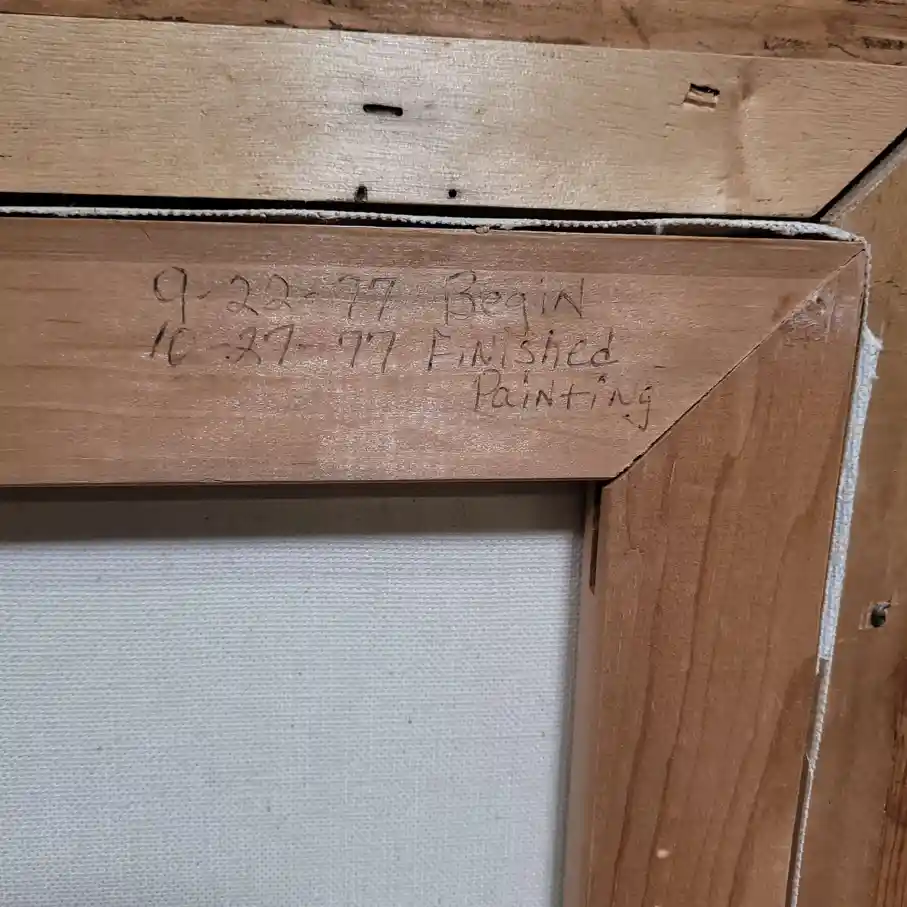 9-22-77 Begin
10-27-77 Finished
Painting